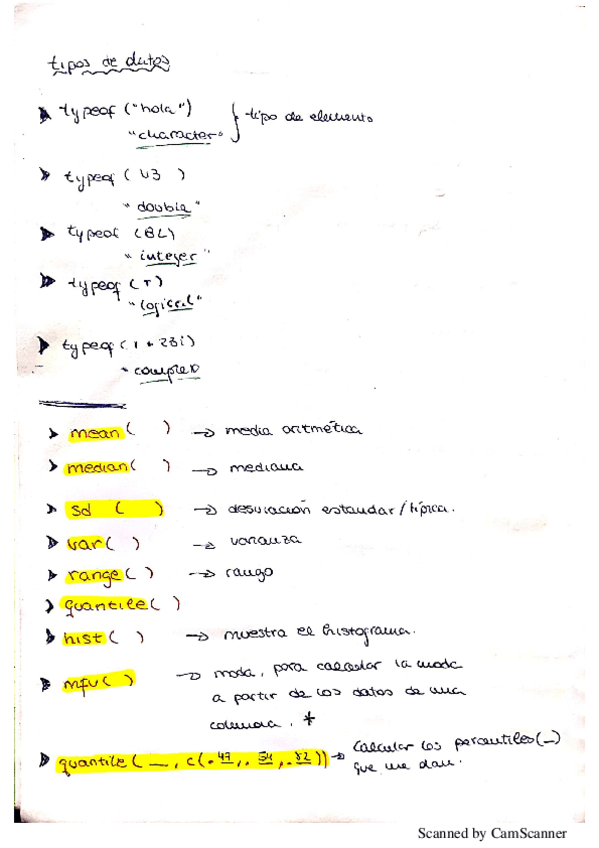 tipos de datos
typeof ("hola") } tipo de elemento
"character"
typeof ( 43 )
"double"
typeof (8L)
"integer"
typeof (T)
"logical"
typeof (1 + 23i)
"complejo
mean ( ) → media aritmética
median ( ) → mediana
sd ( ) → desviación estandar/típica.
var ( ) → varianza
range ( ) → rango
quantile ( )
hist ( ) → muestra el histograma.
mfv ( ) → moda, para calcular la moda
a partir de los datos de una
columna. *
quantile ( __ , c(.47, .54, .82)) → Calcular los percentiles (_)
que me dan.
Scanned by CamScanner